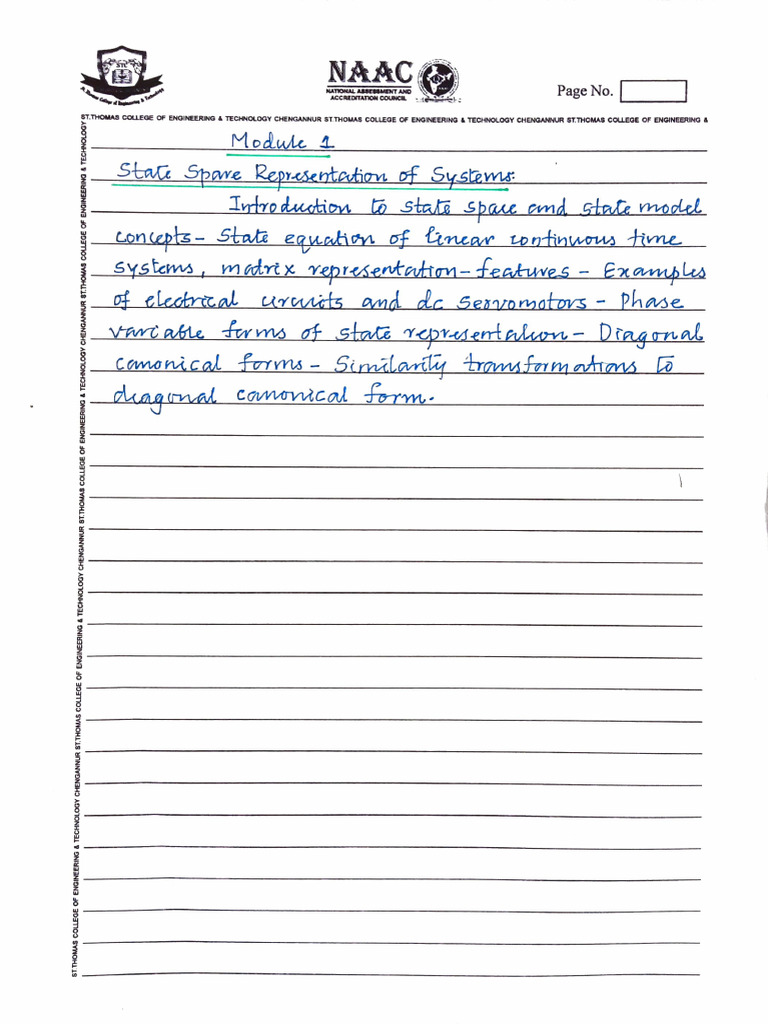 STC
St. Thomas College of Engineering & Technology
NAAC
NATIONAL ASSESSMENT AND
ACCREDITATION COUNCIL
Page No.
ST.THOMAS COLLEGE OF ENGINEERING & TECHNOLOGY CHENGANNUR ST.THOMAS COLLEGE OF ENGINEERING & TECHNOLOGY CHENGANNUR ST.THOMAS COLLEGE OF ENGINEERING &
ST.THOMAS COLLEGE OF ENGINEERING & TECHNOLOGY CHENGANNUR ST.THOMAS COLLEGE OF ENGINEERING & TECHNOLOGY CHENGANNUR ST.THOMAS COLLEGE OF ENGINEERING & TECHNOLOGY CHENGANNUR ST.THOMAS COLLEGE OF ENGINEERING & TECHNOLOGY
Module 1
State Spare Representation of Systems:
Introduction to state space and state model
concepts- State equation of linear continuous time
systems, matrix representation-features - Examples
of electrical circuits and dc servomotors - Phase
variable forms of state representation - Diagonal
canonical forms - Similarity transformations to
diagonal canonical form.